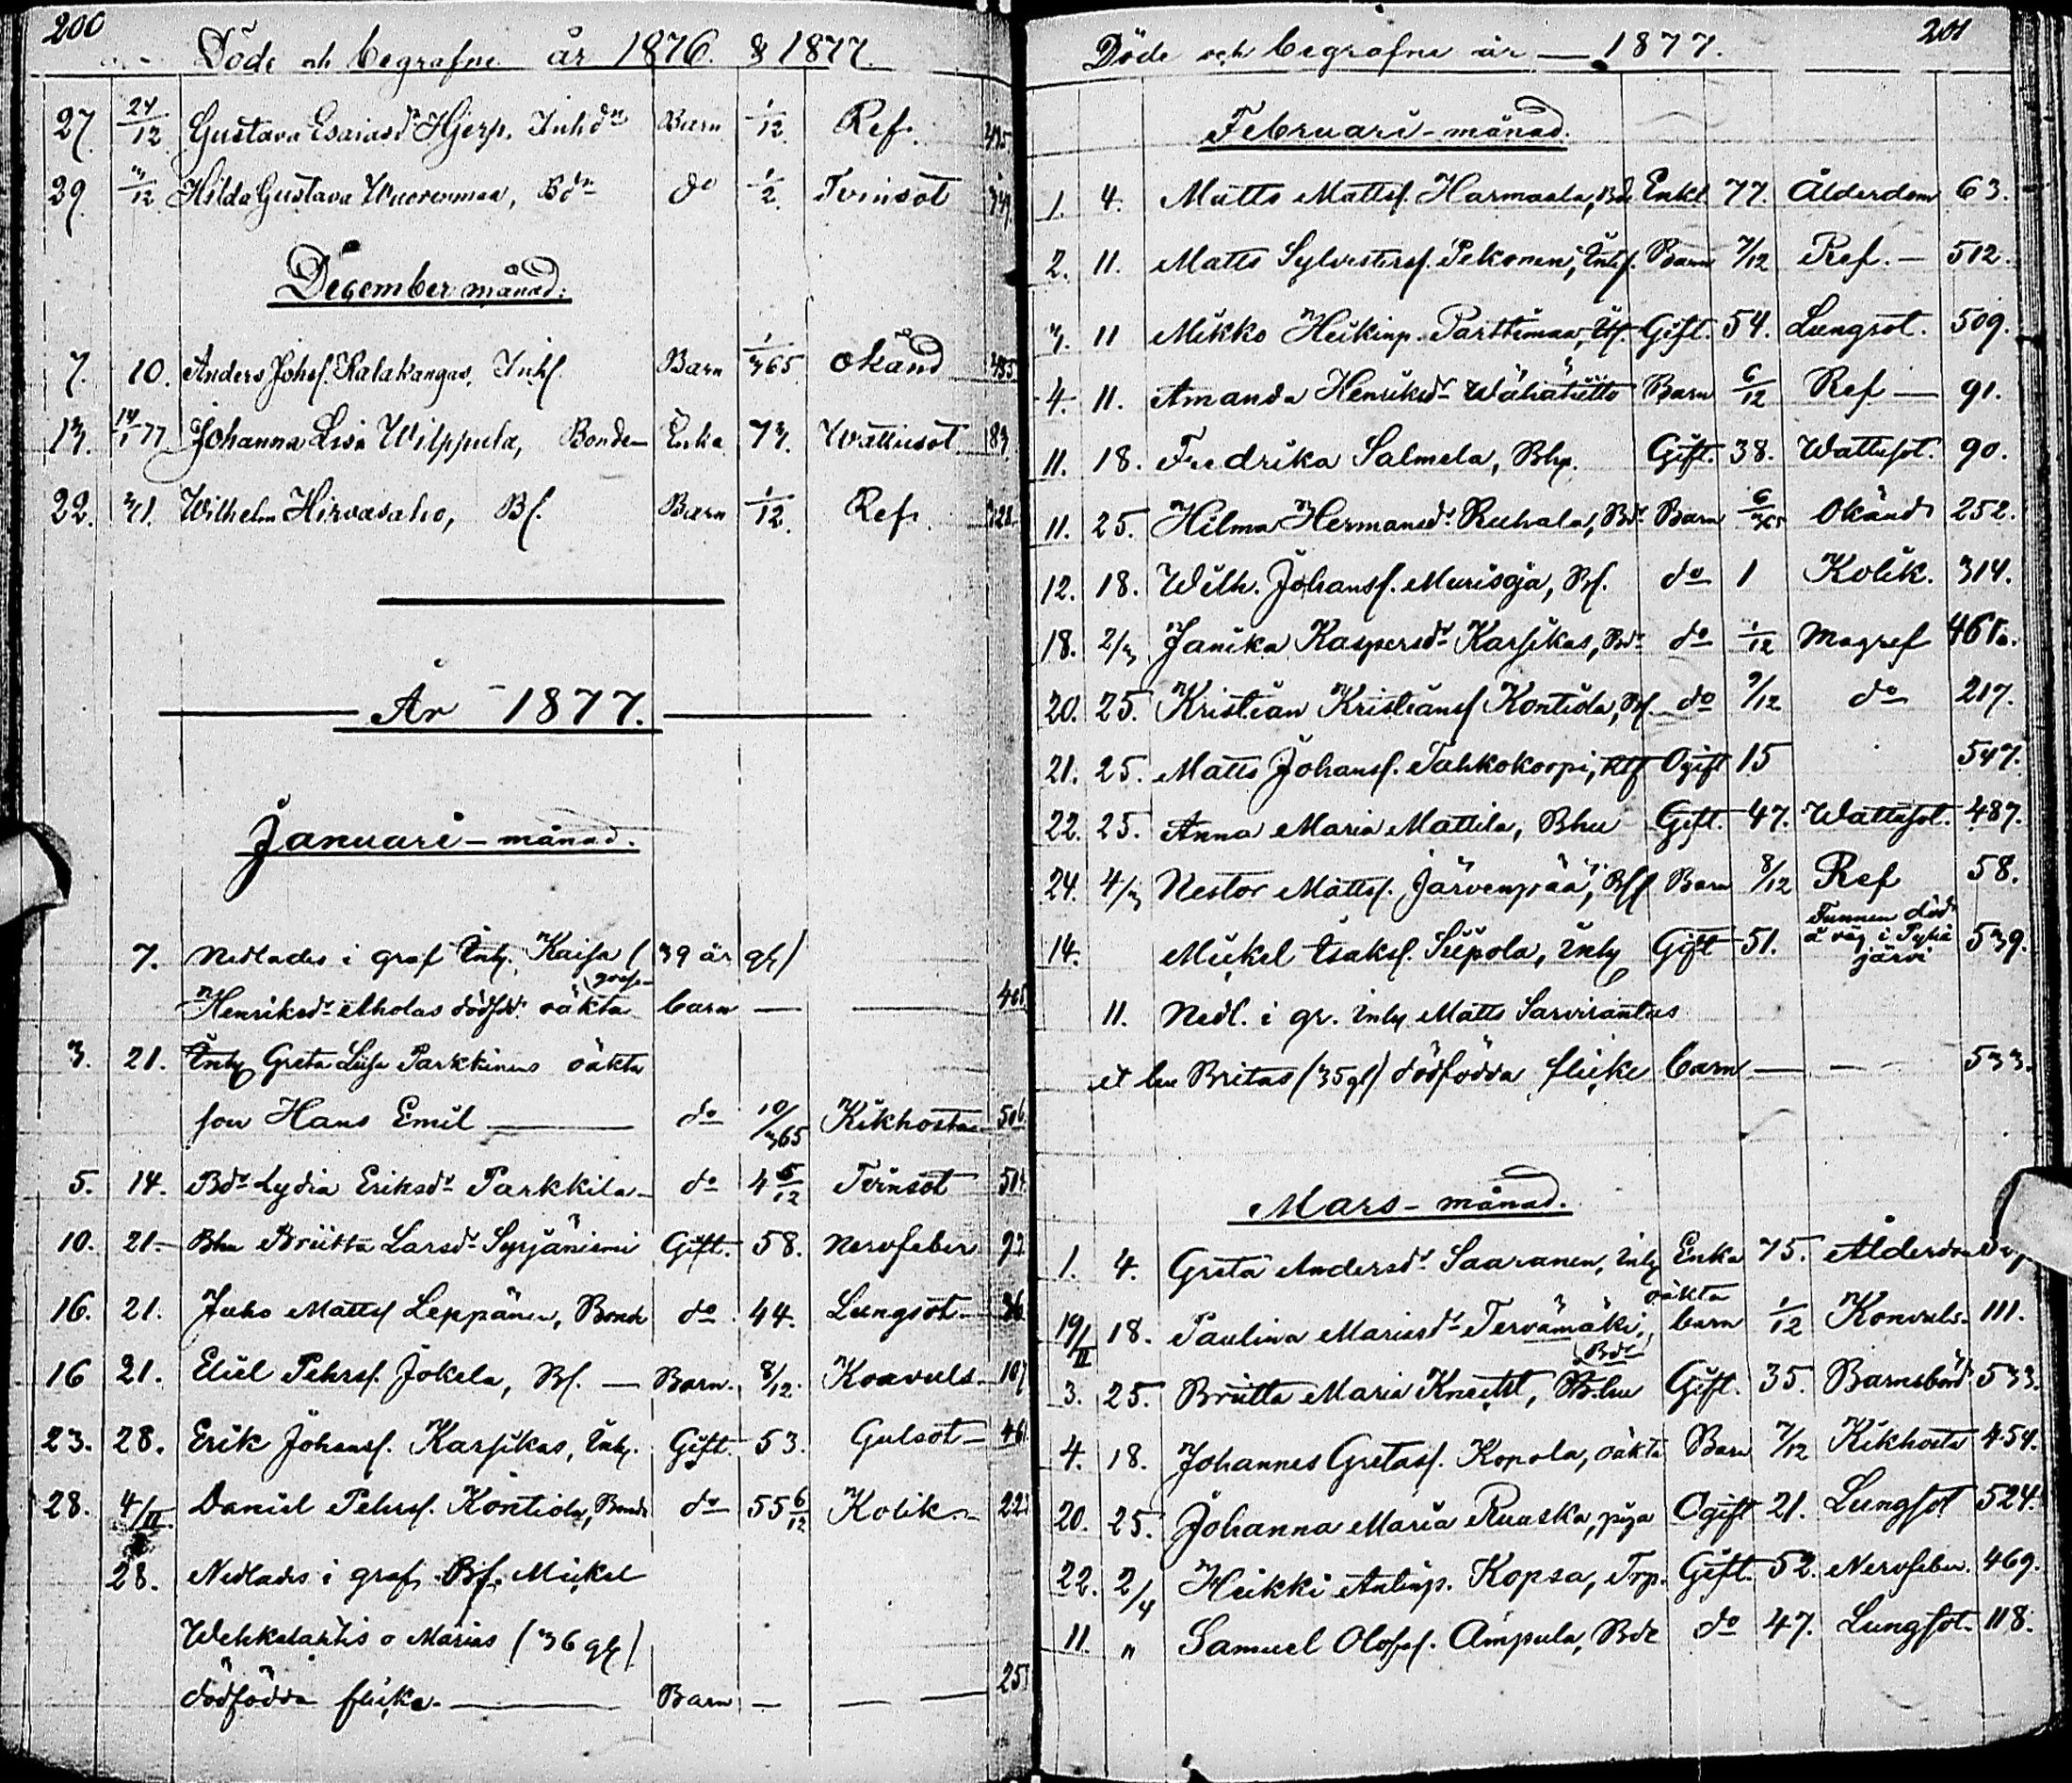 200
Döde och begrafne år 1876. & 1877.
27. 24/12 Gustava Esaiasdr Hjerp. Inhdr Barn 1/12. Ref. 495
29. 3/12 Hilda Gustava Wuorenmaa, Bdr do 1/2. Tvinsot
December månad:
7. 10. Anders Johsf. Kalakangas, Inhf. Barn 1/365 okänd 485
13. 14/1 77 Johanna Lisa Wilppula, Bonde- Enka 73. Wattusot 183
22. 3/1. Wilhelm Hirvasaho, Bf. Barn 1/12. Ref. 328
År 1877.
Januari-månad.
7. Nedlades i graf Inhy. Kaisa (39 år gl)
Henriksdr Aholas dödfdt oäkta barn — —
3. 21. Inhy Greta Liisa Parkkinens oäkta
son Hans Emil — do 10/365 Kikhosta 506
5. 14. Bdr Lydia Eriksdr Parkkila do 4 6/12 Tvinsot 514
10. 21. Bhu Briitta Larsdr Syrjäniemi Gift. 58. Nervfeber 92
16. 21. Juho Mattsf Leppänen, Bonde do 44. Lungsot 36
16 21. Eliel Pehrsf. Jokela, Bf. — Barn. 8/12. Konvuls. 107
23. 28. Erik Johansf. Karsikas, Inhy. Gift. 53. Gulsot 46
28. 4/II Daniel Pehrsf. Kontiola, Bonde do 55 6/12 Kolik 22
28. Nedlades i graf Bf. Mickel
Wehkalahtis o Marias (36 gl)
dödfödda flicka. — Barn — — 25
201
Döde och begrafne år — 1877.
Februari-månad.
1. 4. Matts Mattsf. Harmaala, Bde Enkl 77. Ålderdom 63.
2. 11. Matts Sylvestersf. Pekonen, Inhf. Barn 7/12 Ref. — 512.
3. 11 Mikko Heikinp. Parttimaa, Itf. Gift. 54. Lungsot. 509.
4. 11. Amanda Henriksdr Wähähiitto Barn 6/12 Ref — 91.
11. 18. Fredrika Salmela, Bhu. Gift. 38. Wattusot. 90.
11. 25. Hilma Hermansdr Ruhala, Bdr Barn 6/365 Okänd 252.
12. 18. Wilh. Johansf. Murisoja, Bf. do 1 Kolik. 314.
18. 2/3 Janika Kaspersdr Karsikas, Bdr do 1/12 Magref 461a.
20. 25. Kristian Kristiansf Kontiola, Bf do 9/12 do 217.
21. 25. Matts Johansf. Tahkokorpi, Itf Ogift 15 547.
22. 25. Anna Maria Mattila, Bhu Gift. 47. Wattusot. 487.
24. 4/3 Nestor Mattsf. Järvenpää, Bf Barn 8/12 Ref 58.
14. Mickel Isaksf. Siipola, Inhy Gift 51. Funnen död å väg i Pyhäjärvi 539.
11. Nedl. i gr. Inhy Matts Sarvirantas
et hu Britas (35 gl) dödfödda flicke barn — — 533.
Mars-månad.
1. 4. Greta Andersdr Saaranen, Inhy Enka 75. Ålderdom
19/II 18. Paulina Mariasdr Tervämäki, Bdr oäkta barn 1/12 Konvuls. 111.
3. 25. Briitta Maria Knecht, Bhu Gift. 35. Barnsbörd 533.
4. 18. Johannes Gretasf. Kopola, oäkta Barn 7/12 Kikhosta 454.
20. 25. Johanna Maria Ruuska, piga Ogift 21. Lungsot 524.
22. 2/4 Heikki Antinp. Kopsa, Trp. Gift. 52. Nervfeber. 469.
11. " Samuel Olofsf. Ämpula, Bde do 47. Lungsot. 118.